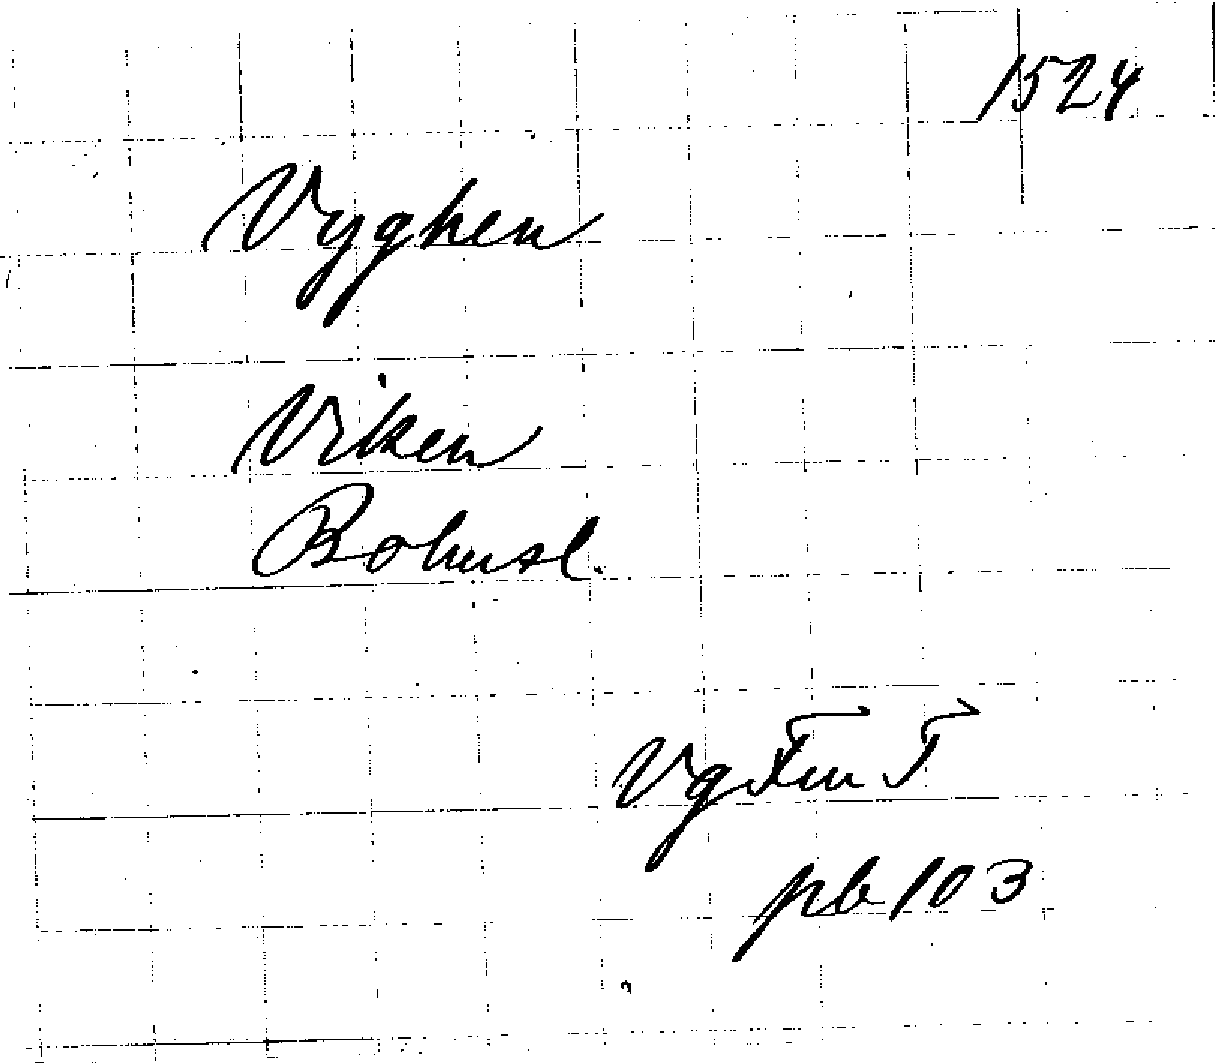 1524
Vyghen
Viken
Bohusl.
VgFmT
pb 103